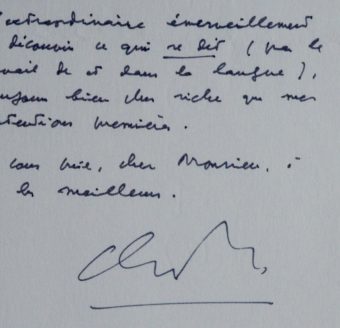 'extraordinaire émerveillement
découvrir ce qui se dit (par le
vail de et dans la langue),
ujours bien plus riche que mes
tentions premières.
vous prie, cher Monsieur, à
les meilleurs.